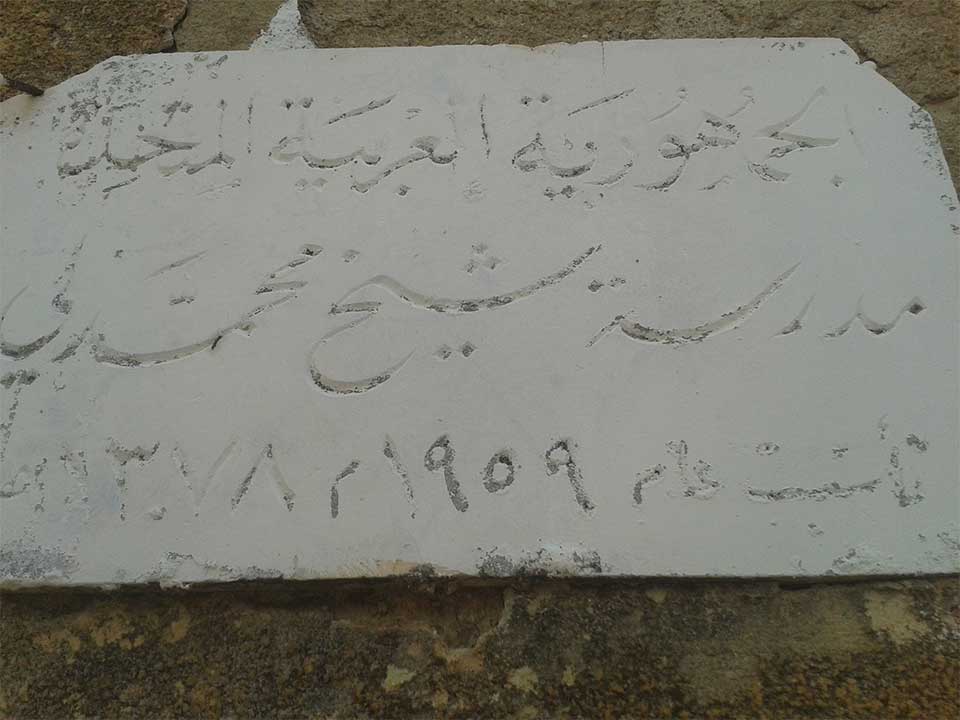 الجمهورية العربية المتحدة
مدرسة شيخ محمد
تأسست عام ١٩٥٩ م ١٣٧٨